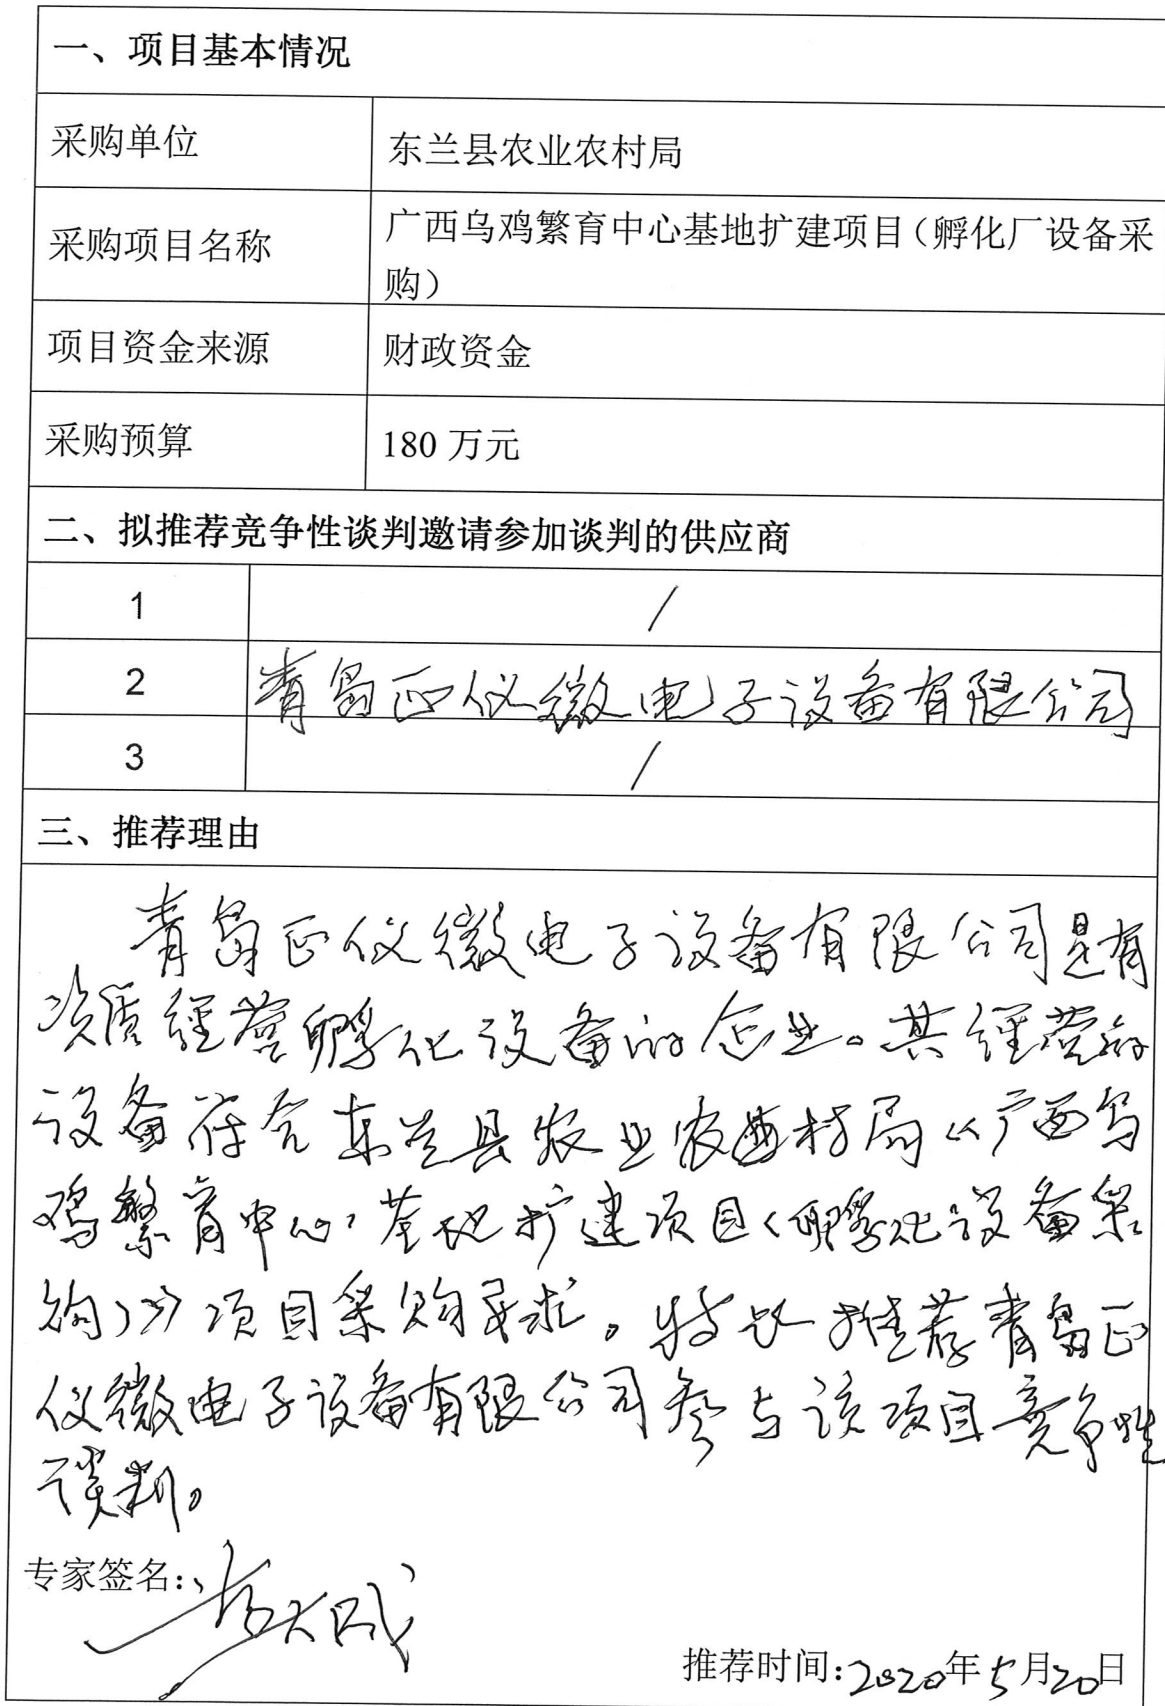 一、项目基本情况
采购单位
东兰县农业农村局
采购项目名称
广西乌鸡繁育中心基地扩建项目（孵化厂设备采
购）
项目资金来源
财政资金
采购预算
180 万元
二、拟推荐竞争性谈判邀请参加谈判的供应商
1
/
2
青岛正仪微电子设备有限公司
3
/
三、推荐理由
青岛正仪微电子设备有限公司是有
资质经营孵化设备的企业。其经营的
设备符合东兰县农业农村局《广西乌
鸡繁育中心基地扩建项目（孵化设备采
购）》项目采购要求。特此推荐青岛正
仪微电子设备有限公司参与该项目竞争性
谈判。
专家签名：
推荐时间：2020年5月20日